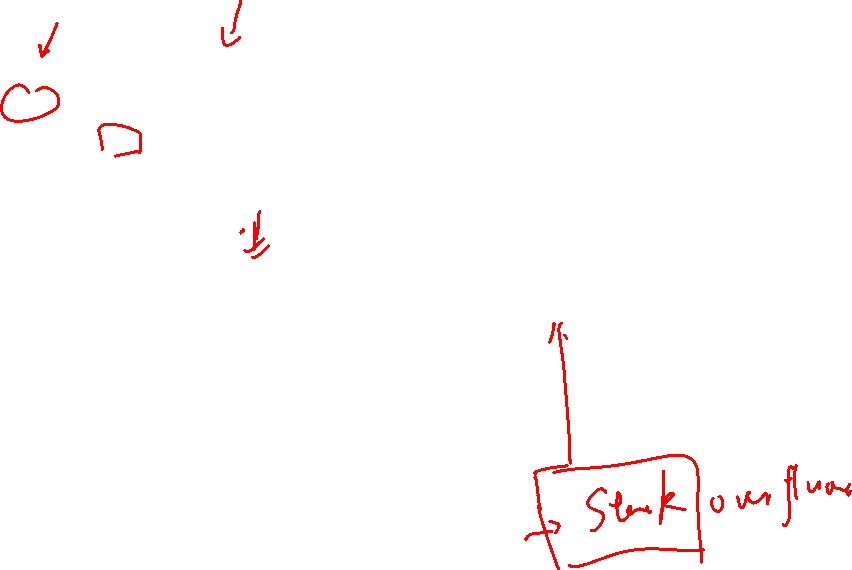 Stack overflow